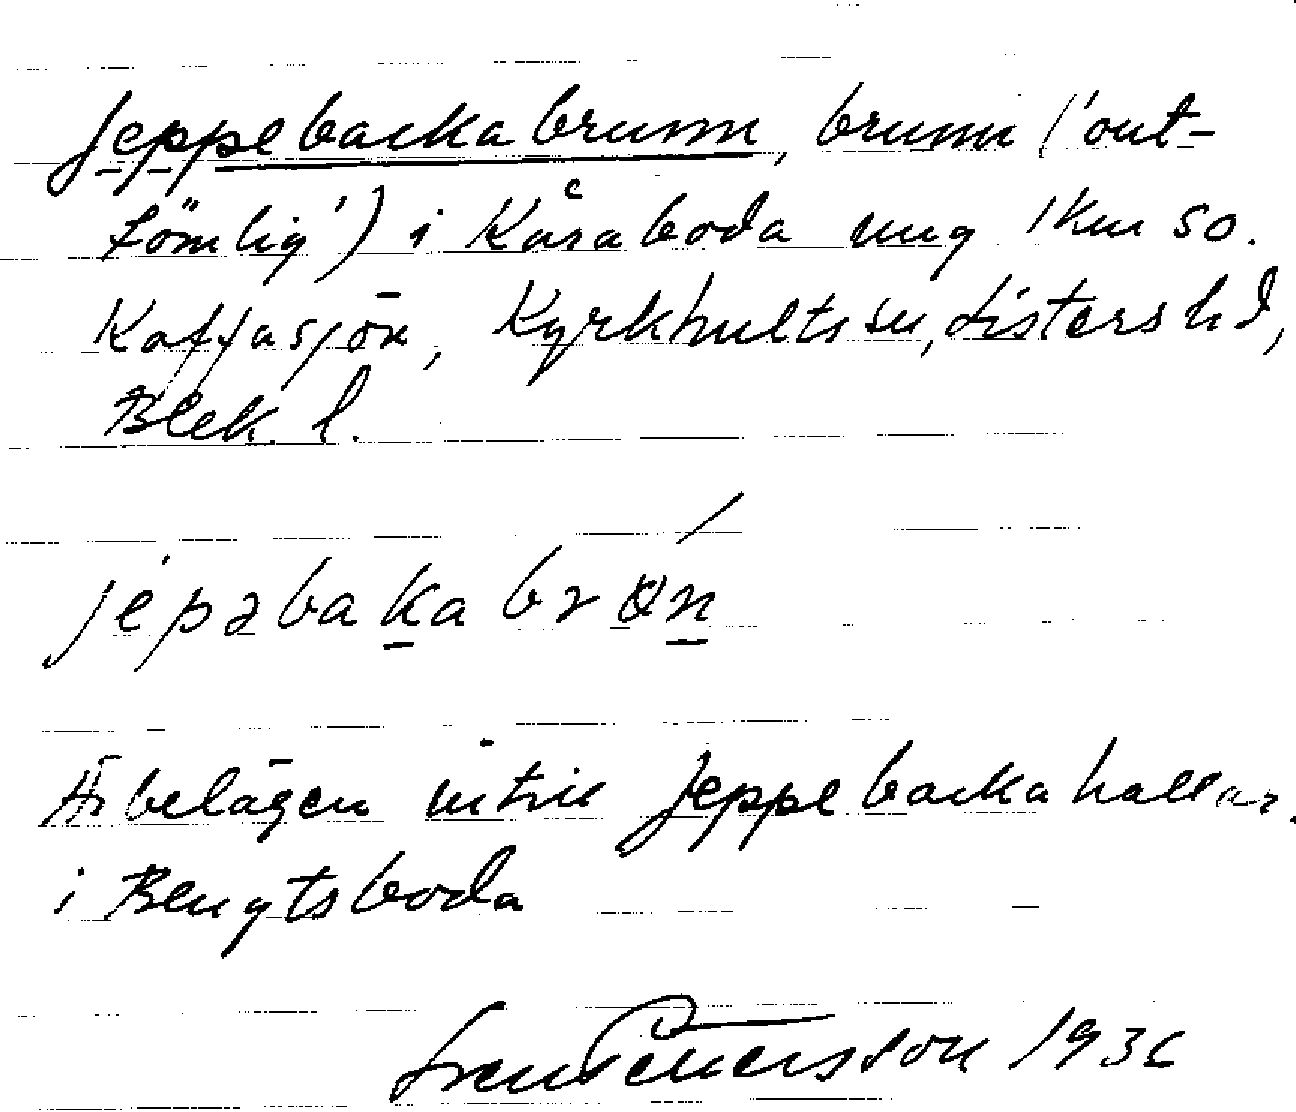 Jeppebackabrunn, brunn ('out-
tömlig') i Kåraboda ung 1 km so.
Kaffasjön, Kyrkhults sn, Listers hd,
Blek. l.
jépəbakabrøn
Är belägen intill Jeppebackahallar.
i Bengtsboda
Sven Pettersson 1936